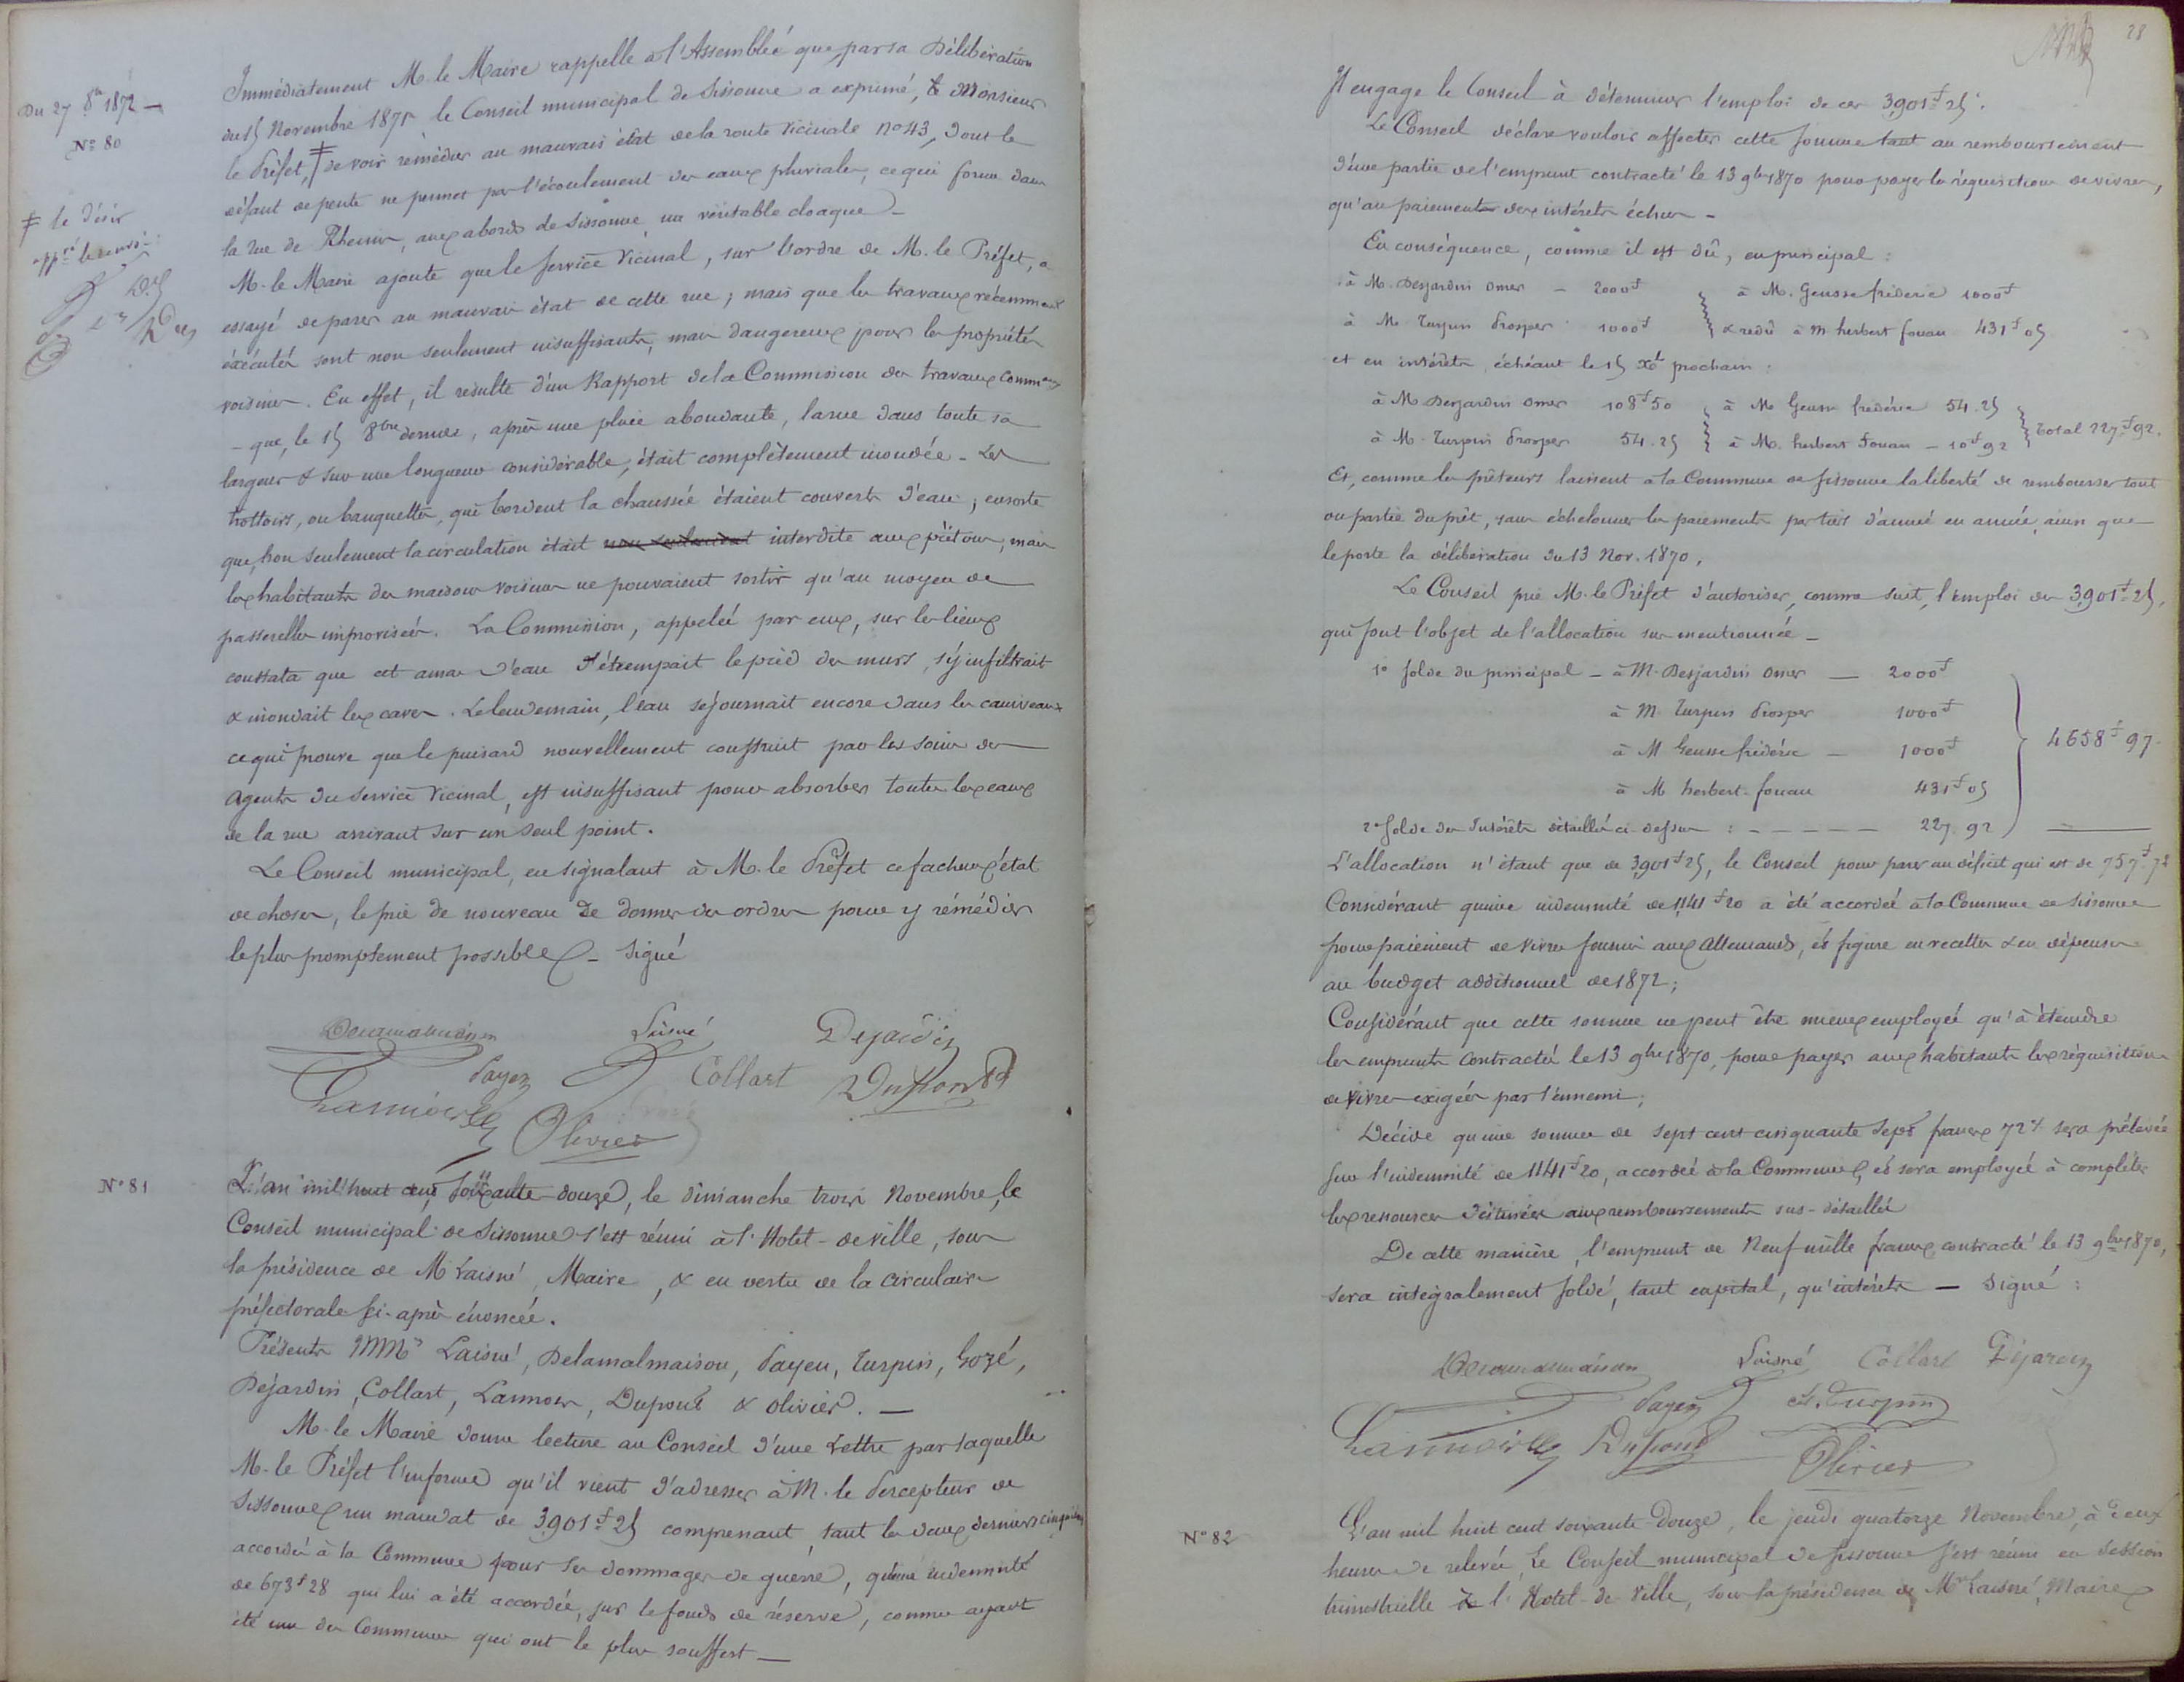 Du 27 8bre 1872 —
N° 80
Immédiatement M. le Maire rappelle à l'Assemblée que par sa Délibération
du 15 Novembre 1871 le Conseil municipal de Sissonne a exprimé, à Monsieur
le Préfet, ‡ de voir remédier au mauvais état de la route vicinale n° 43, dont le
défaut de pente ne permet pas l'écoulement des eaux pluviales, ce qui forme dans
la rue de Rheims, aux abords de Sissonne, un véritable cloaque –
‡ le désir
app.vé le renvoi
M. le Maire ajoute que le Service vicinal, sur l'ordre de M. le Préfet, a
essayé de parer au mauvais état de cette rue ; mais que les travaux récemment
éxécutés sont non seulement insuffisants, mais dangereux pour les propriétés
voisines. En effet, il résulte d'un Rapport de la Commission des travaux comm.aux
– que, le 15 8bre dernier, après une pluie abondante, la rue dans toute sa
largeur & sur une longueur considérable, était complètement inondée – Les
trottoirs, ou banquettes, qui bordent la chaussée étaient couverts d'eau ; ensorte
que, non seulement la circulation était non seulement interdite aux piétons, mais
les habitants des maisons voisines ne pouvaient sortir qu'au moyen de
passerelles improvisées. La Commission, appelée par eux, sur les lieux
constata que cet amas d'eau détrempait le pied des murs, s'y infiltrait
& inondait les caves. Le lendemain, l'eau séjournait encore dans les caniveaux
ce qui prouve que le puisard nouvellement construit par les soins des
agents du Service vicinal, est insuffisant pour absorber toutes les eaux
de la rue arrivant sur un seul point.
Le Conseil municipal, en signalant à M. le Préfet ce facheux état
de choses, le prie de nouveau de donner des ordres pour y rémédier
le plus promptement possible – Signé
Delamalmaison Laisné Dejardin
Payen Collart Dupont
Lannois Olivier
N° 81
L'an mil huit cent soixante-douze, le dimanche trois Novembre, le
Conseil municipal de Sissonne s'est réuni à l'Hotel-de ville, sous
la présidence de M Laisné, Maire, & en vertu de la circulaire
préfectorale ci-après énoncée.
Présents MMrs Laisné, Delamalmaison, Payen, Turpin, Gozé,
Dejardin, Collart, Lannois, Dupont & Olivier. —
M. le Maire donne lecture au Conseil d'une Lettre par laquelle
M. le Préfet l'informe qu'il vient d'adresser à M. le Percepteur de
Sissonne un mandat de 3,901f 25 comprenant, tant les deux derniers cinquièmes
accordés à la Commune pour ses dommages de guerre, qu'une indemnité
de 673f 28 qui lui a été accordée, sur le fonds de réserve, comme ayant
été une des Communes qui ont le plus souffert —
28
Il engage le Conseil à déterminer l'emploi de ces 3,901f 25c.
Le Conseil déclare vouloir affecter cette somme tant au remboursement
d'une partie de l'emprunt contracté le 13 9bre 1870 pour payer les réquisitions de vivres,
qu'au paiement des intérêts échus –
En conséquence, comme il est dû, en principal :
à M. Desjardin Omer – 2000f à M. Geusse fréderic 1000f
à M Turpin Prosper 1000f & redû à M herbert fouau 431f 05
et en intérêts échéant le 15 Xbre prochain :
à M Desjardin Omer 108f 50 à M Geusse frédéric 54.25
à M. Turpin Prosper 54.25 à M. herbert fouau – 10f 92 Total 227f 92.
Et, comme les prêteurs laissent à la Commune de Sissonne la liberté de rembourser tout
ou partie du prêt, sauf échelonner les paiements par tiers d'année en année, ainsi que
le porte la délibération du 13 Nov. 1870,
Le Conseil prie M. le Préfet d'autoriser, comme suit, l'emploi des 3,901f 25,
qui font l'objet de l'allocation sus mentionnée –
1° Solde du principal – à M. Desjardin Omer — 2000f
à M. Turpin Prosper 1000f
à M Geusse frédéric – 1000f 4658f 97
à M herbert-fouau 431f 05
2° Solde des Intérêts détaillés ci-dessus : – – – – – 227. 92
L'allocation n'étant que de 3,901f 25, le Conseil pour parer au déficit qui est de 757f 72
Considérant qu'une indemnité de 1,141f 20 a été accordée à la Commune de Sissonne
pour paiement de vivres fournis aux Allemands, et figure en recettes & en dépenses
au budget additionnel de 1872 ;
Considérant que cette somme ne peut être mieux employée qu'à éteindre
les emprunts contractés le 13 9bre 1870, pour payer aux habitants les réquisitions
de vivres exigées par l'ennemi ;
Décide qu'une somme de sept cent cinquante sept francs 72c sera prélevée
sur l'indemnité de 1141f 20, accordée à la Commune, et sera employée à compléter
les ressources destinées aux remboursements sus-détaillés
De cette manière, l'emprunt de Neuf mille francs contracté le 13 9bre 1870,
sera intégralement soldé, tant capital, qu'intérêts — Signé :
Delamalmaison Laisné Collart Dejardin
Payen Turpin
Lannois Dupont
Olivier
N° 82
L'an mil huit cent soixante-douze, le jeudi quatorze Novembre, à deux
heures de relevée, Le Conseil municipal de Sissonne s'est réuni en session
trimestrielle à l'Hotel-de-Ville, sous la présidence de Mr Laisné, Maire